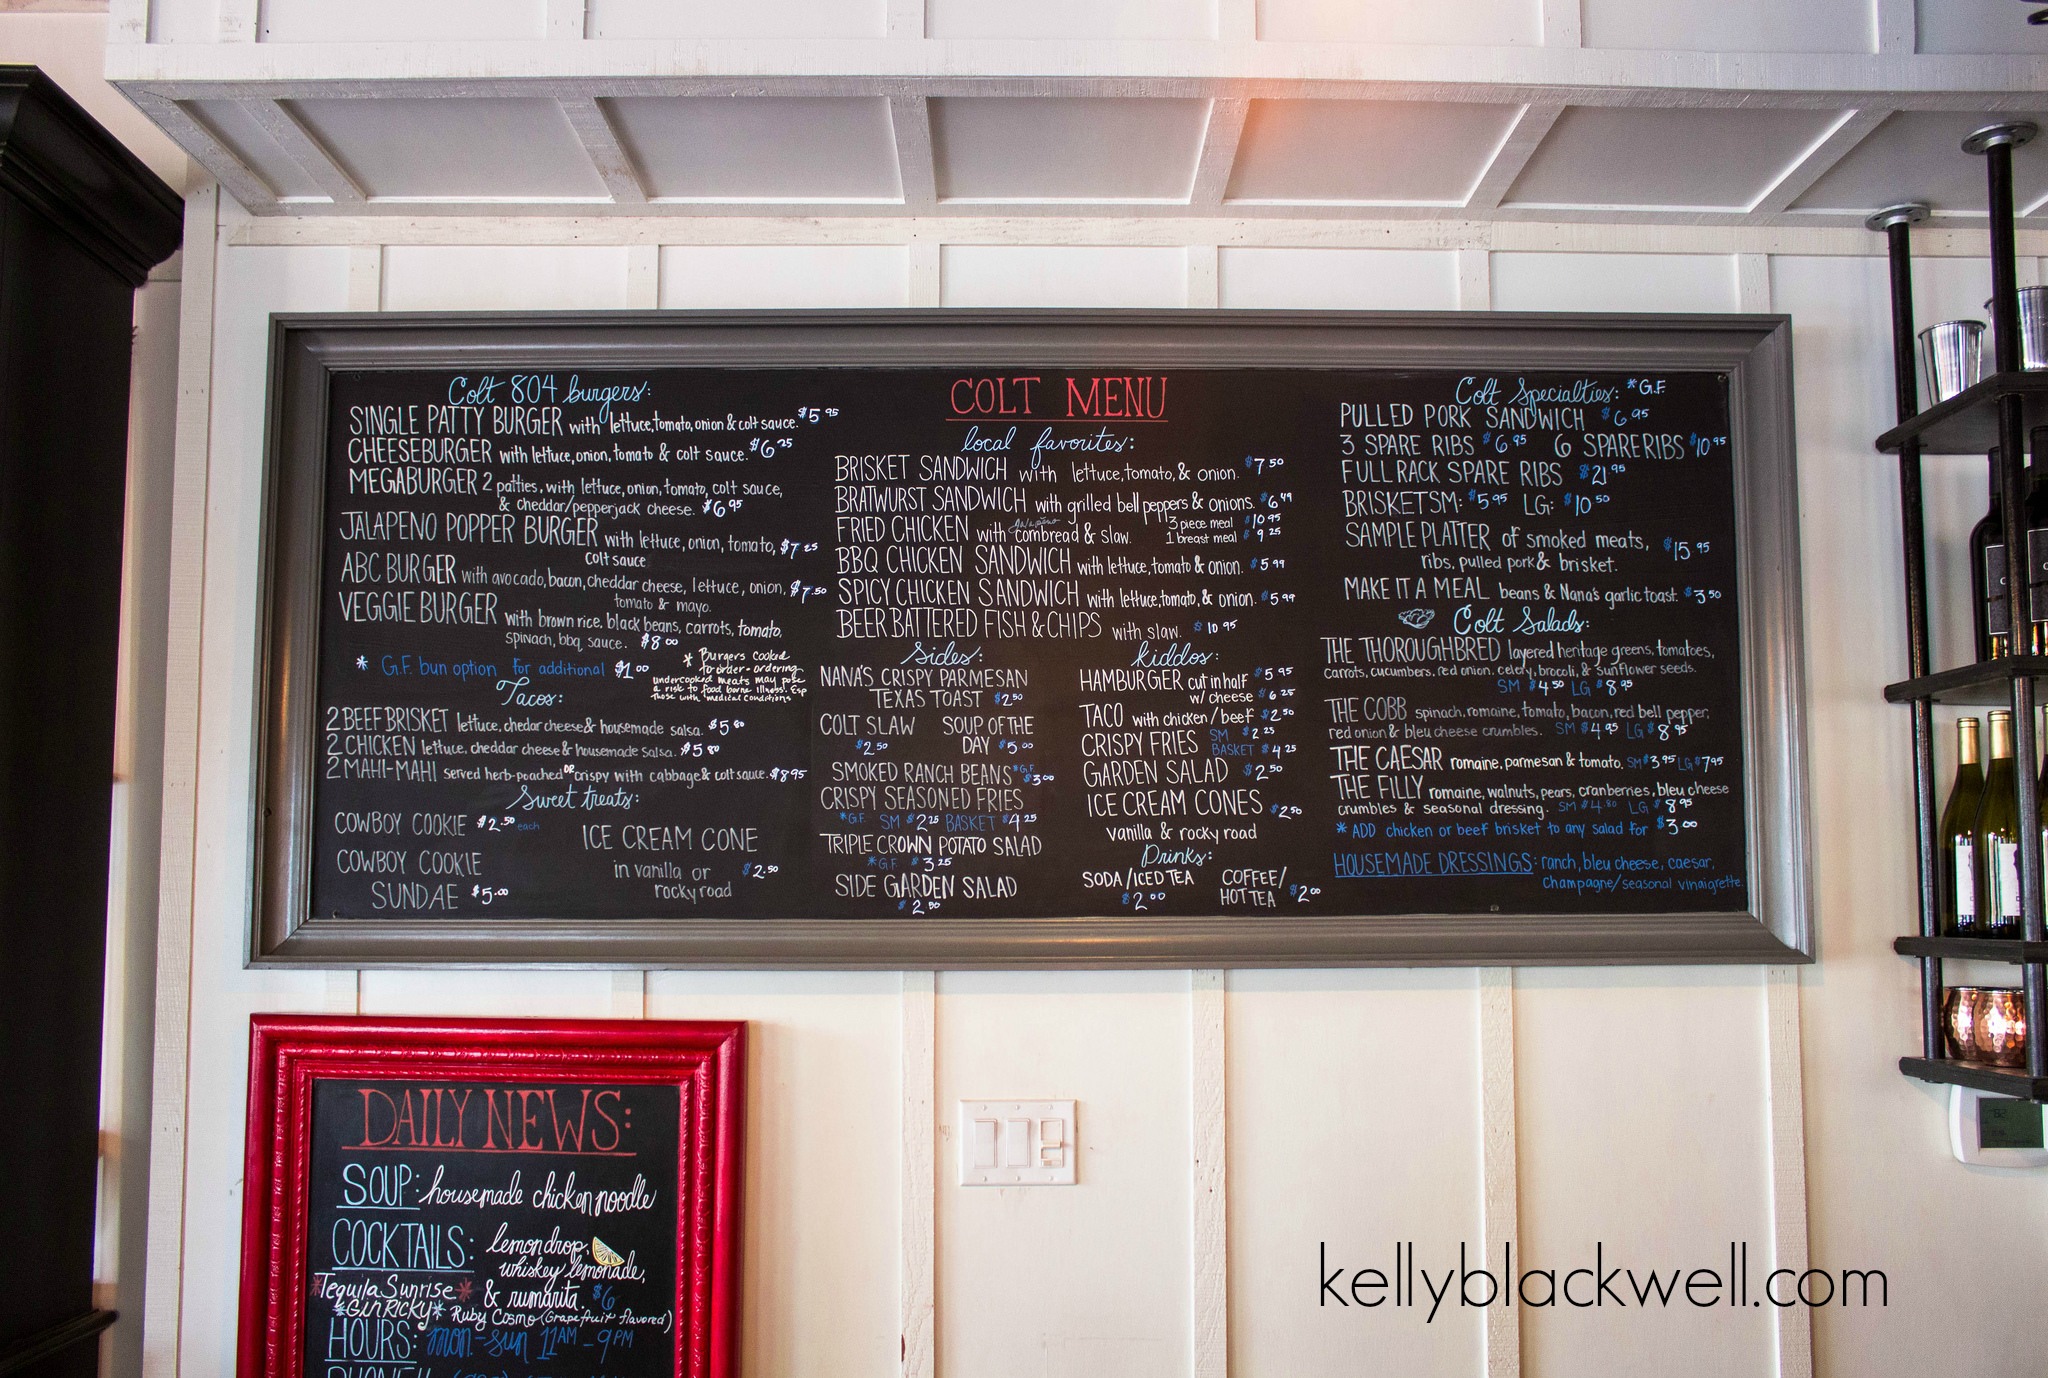 Colt 804 burgers:
SINGLE PATTY BURGER with lettuce, tomato, onion & colt sauce. $5.95
CHEESEBURGER with lettuce, onion, tomato & colt sauce. $6.25
MEGABURGER 2 patties, with lettuce, onion, tomato, colt sauce,
& cheddar/pepperjack cheese. $6.95
JALAPENO POPPER BURGER with lettuce, onion, tomato, $7.25
colt sauce
ABC BURGER with avocado, bacon, cheddar cheese, lettuce, onion, $7.50
tomato & mayo.
VEGGIE BURGER with brown rice, black beans, carrots, tomato,
spinach, bbq sauce. $8.00
* G.F. bun option for additional $1.00
* Burgers cooked
to order - ordering
undercooked meats may pose
a risk to food borne illness. Esp
those with "medical conditions
Tacos:
2 BEEF BRISKET lettuce, chedar cheese & housemade salsa. $5.80
2 CHICKEN lettuce, cheddar cheese & housemade salsa. $5.80
2 MAHI-MAHI served herb-poached OR crispy with cabbage & colt sauce. $8.95
Sweet treats:
COWBOY COOKIE $2.50 each
COWBOY COOKIE
SUNDAE $5.00
ICE CREAM CONE
in vanilla or $2.50
rocky road
COLT MENU
local favorites:
BRISKET SANDWICH with lettuce, tomato, & onion. $7.50
BRATWURST SANDWICH with grilled bell peppers & onions. $6.49
FRIED CHICKEN with jalapeño cornbread & slaw. 3 piece meal $10.95
1 breast meal $9.25
BBQ CHICKEN SANDWICH with lettuce, tomato & onion. $5.99
SPICY CHICKEN SANDWICH with lettuce, tomato, & onion. $5.99
BEER BATTERED FISH & CHIPS with slaw. $10.95
Sides:
NANA'S CRISPY PARMESAN
TEXAS TOAST $2.50
COLT SLAW
$2.50
SOUP OF THE
DAY $5.00
SMOKED RANCH BEANS *G.F. $3.00
CRISPY SEASONED FRIES
*G.F. SM $2.25 BASKET $4.25
TRIPLE CROWN POTATO SALAD
*G.F. $3.25
SIDE GARDEN SALAD
$2.50
kiddos:
HAMBURGER cut in half $5.95
w/ cheese $6.25
TACO with chicken/beef $2.50
CRISPY FRIES SM $2.25
BASKET $4.25
GARDEN SALAD $2.50
ICE CREAM CONES $2.50
vanilla & rocky road
Drinks:
SODA/ICED TEA
$2.00
COFFEE/
HOT TEA $2.00
Colt Specialties: *G.F.
PULLED PORK SANDWICH $6.95
3 SPARE RIBS $6.95 6 SPARE RIBS $10.95
FULL RACK SPARE RIBS $21.95
BRISKET SM: $5.95 LG: $10.50
SAMPLE PLATTER of smoked meats, $15.95
ribs, pulled pork & brisket.
MAKE IT A MEAL beans & Nana's garlic toast. $3.50
Colt Salads:
THE THOROUGHBRED layered heritage greens, tomatoes,
carrots, cucumbers, red onion, celery, brocoli, & sunflower seeds.
SM $4.50 LG $8.95
THE COBB spinach, romaine, tomato, bacon, red bell pepper,
red onion & bleu cheese crumbles. SM $4.95 LG $8.95
THE CAESAR romaine, parmesan & tomato. SM $3.95 LG $7.95
THE FILLY romaine, walnuts, pears, cranberries, bleu cheese
crumbles & seasonal dressing. SM $4.80 LG $8.95
*ADD chicken or beef brisket to any salad for $3.00
HOUSEMADE DRESSINGS: ranch, bleu cheese, caesar,
champagne/seasonal vinaigrette.
DAILY NEWS:
SOUP: housemade chicken noodle
COCKTAILS: lemondrop,
whiskey lemonade,
*Tequila Sunrise* & rumarita. $6
*Gin Ricky* Ruby Cosmo (Grapefruit flavored)
HOURS: mon-sun 11AM-9PM
kellyblackwell.com